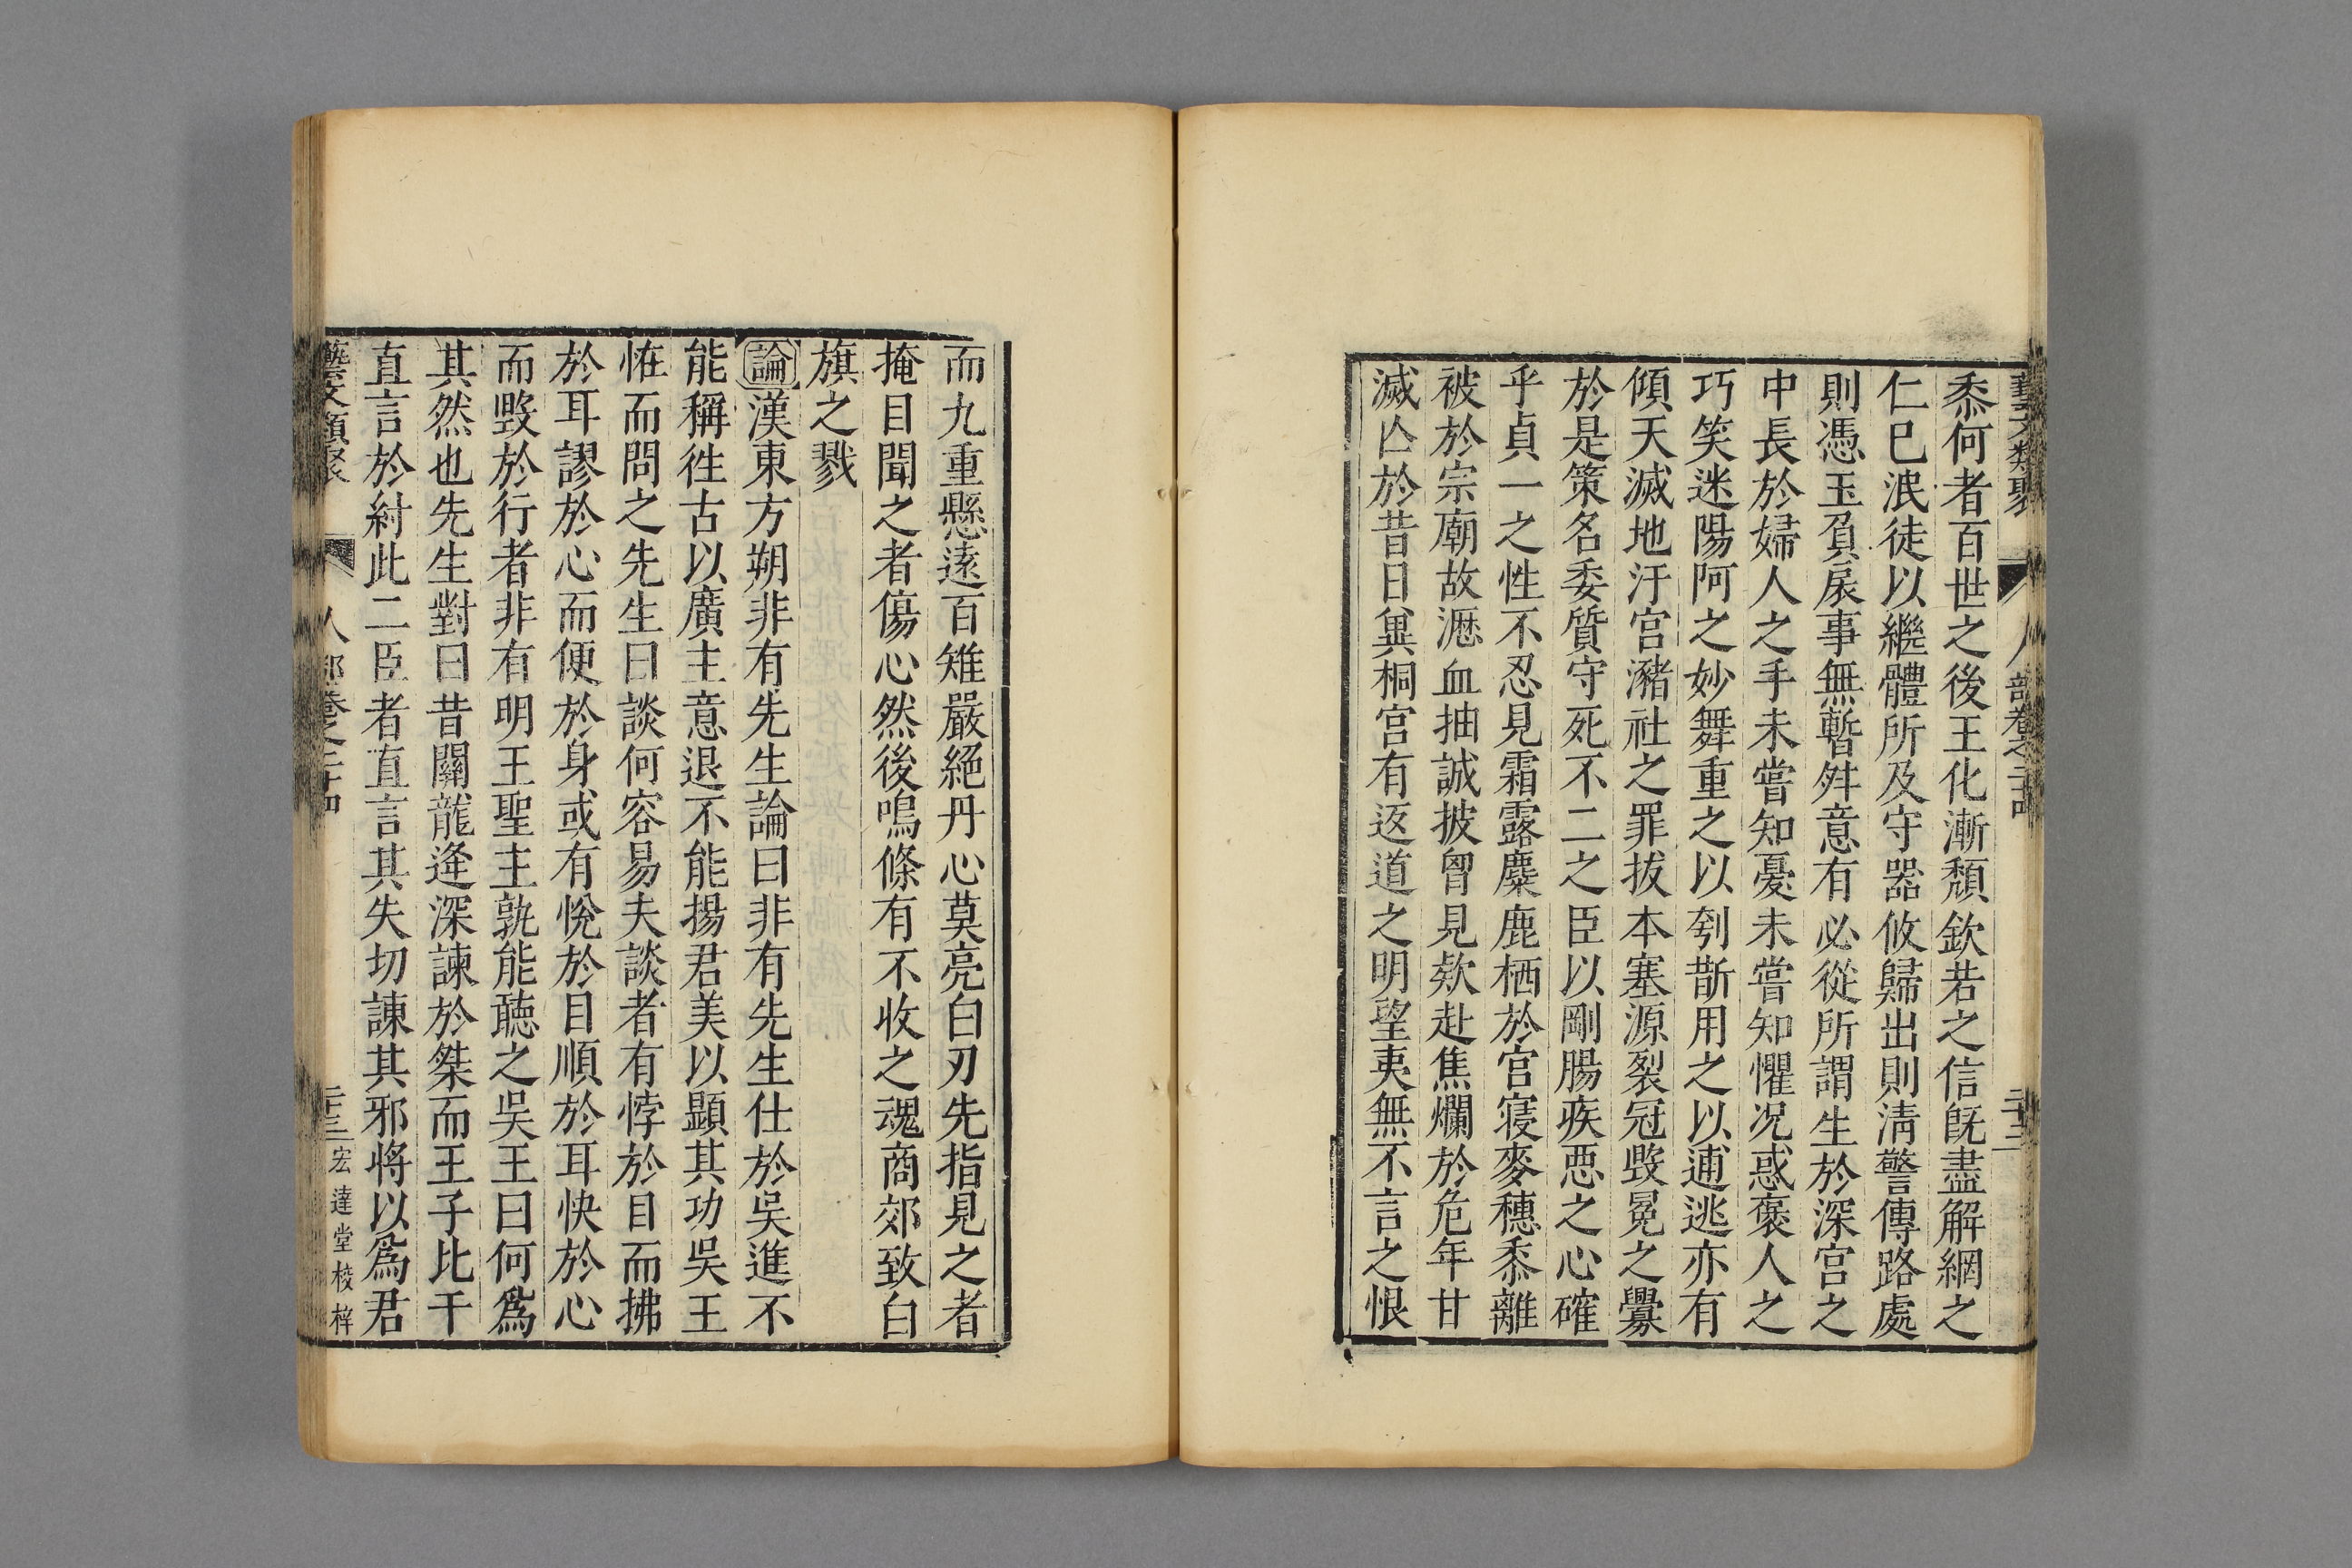 藝文類聚 人部卷之二十四 二十二
黍何者百世之後王化漸頹欽若之信旣盡解網之
仁已泯徒以繼體所及守器攸歸出則淸警傳路處
則憑玉負扆事無暫舛意有必從所謂生於深宫之
中長於婦人之手未嘗知憂未嘗知懼况惑褒人之
巧笑迷陽阿之妙舞重之以刳斮用之以逋逃亦有
傾天滅地汙宫瀦社之罪拔本塞源裂冠毁冕之釁
於是策名委質守死不二之臣以剛腸疾惡之心確
乎貞一之性不忍見霜露麋鹿栖於宫寝麥穗黍離
被於宗廟故瀝血抽誠披胷見欵赴焦爛於危年甘
滅亾於昔日兾桐宫有返道之明望夷無不言之恨
而九重懸逺百雉嚴絕丹心莫亮白刃先指見之者
掩目聞之者傷心然後鳴條有不收之魂商郊致白
旗之戮
論漢東方朔非有先生論曰非有先生仕於吳進不
能稱徃古以廣主意退不能揚君美以顯其功吳王
恠而問之先生曰談何容易夫談者有悖於目而拂
於耳謬於心而便於身或有恱於目順於耳快於心
而毁於行者非有明王聖主孰能聽之吳王曰何爲
其然也先生對曰昔關龍逄深諫於桀而王子比干
直言於紂此二臣者直言其失切諫其邪將以爲君
藝文類聚 人部卷之二十四 二十三 宏達堂校梓